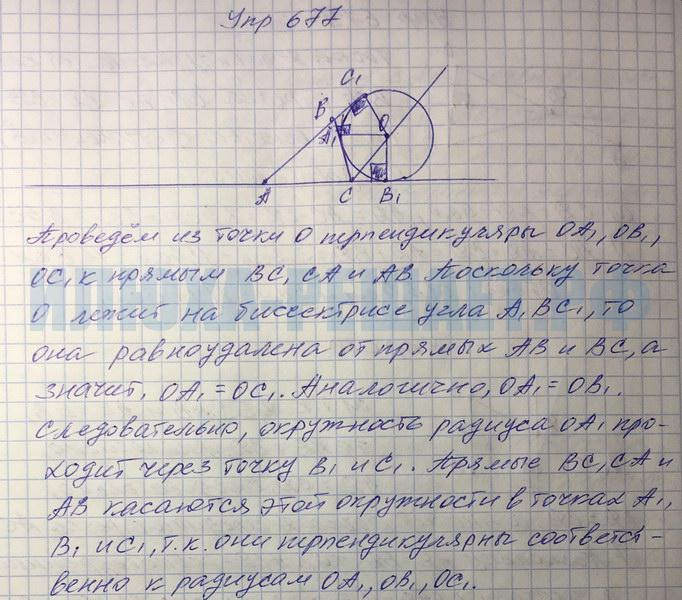 Упр 677
C₁
B
A₁
O
A
C
B₁
Проведём из точки O перпендикуляры OA₁, OB₁,
OC₁ к прямым BC, CA и AB. Поскольку точка
O лежит на биссектрисе угла A₁BC₁, то
она равноудалена от прямых AB и BC, а
значит, OA₁ = OC₁. Аналогично, OA₁ = OB₁.
Следовательно, окружность радиуса OA₁ про-
ходит через точку B₁ и C₁. Прямые BC, CA и
AB касаются этой окружности в точках A₁,
B₁ и C₁, т.к. они перпендикулярны соответст-
венно к радиусам OA₁, OB₁, OC₁.